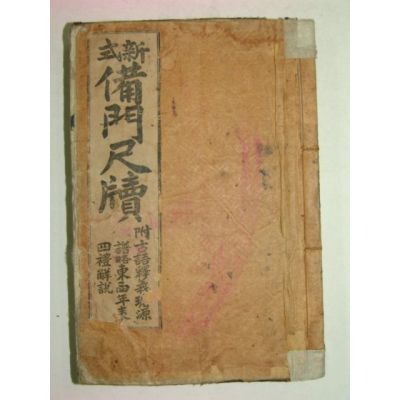 新式
備門尺牘
附古語釋義璿源
譜略東西年表
四禮解說